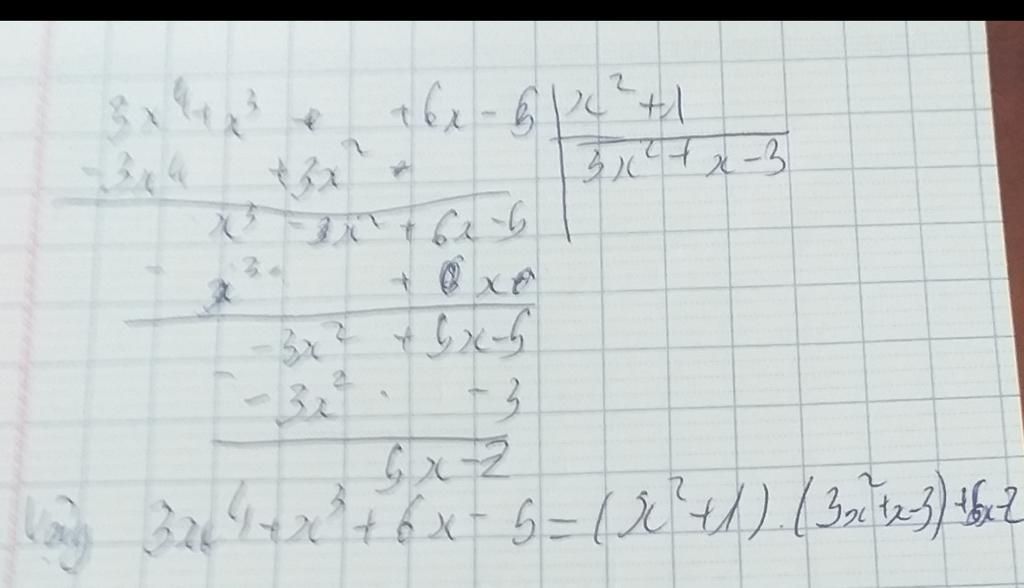 3x⁴+x³ + +6x-5 | x²+1
-3x⁴ +3x² | 3x²+x-3
x³ -3x² +6x-5
- x³ + x
-3x² +5x-5
- -3x² -3
5x-2
Vậy 3x⁴+x³+6x-5=(x²+1).(3x²+x-3)+5x-2